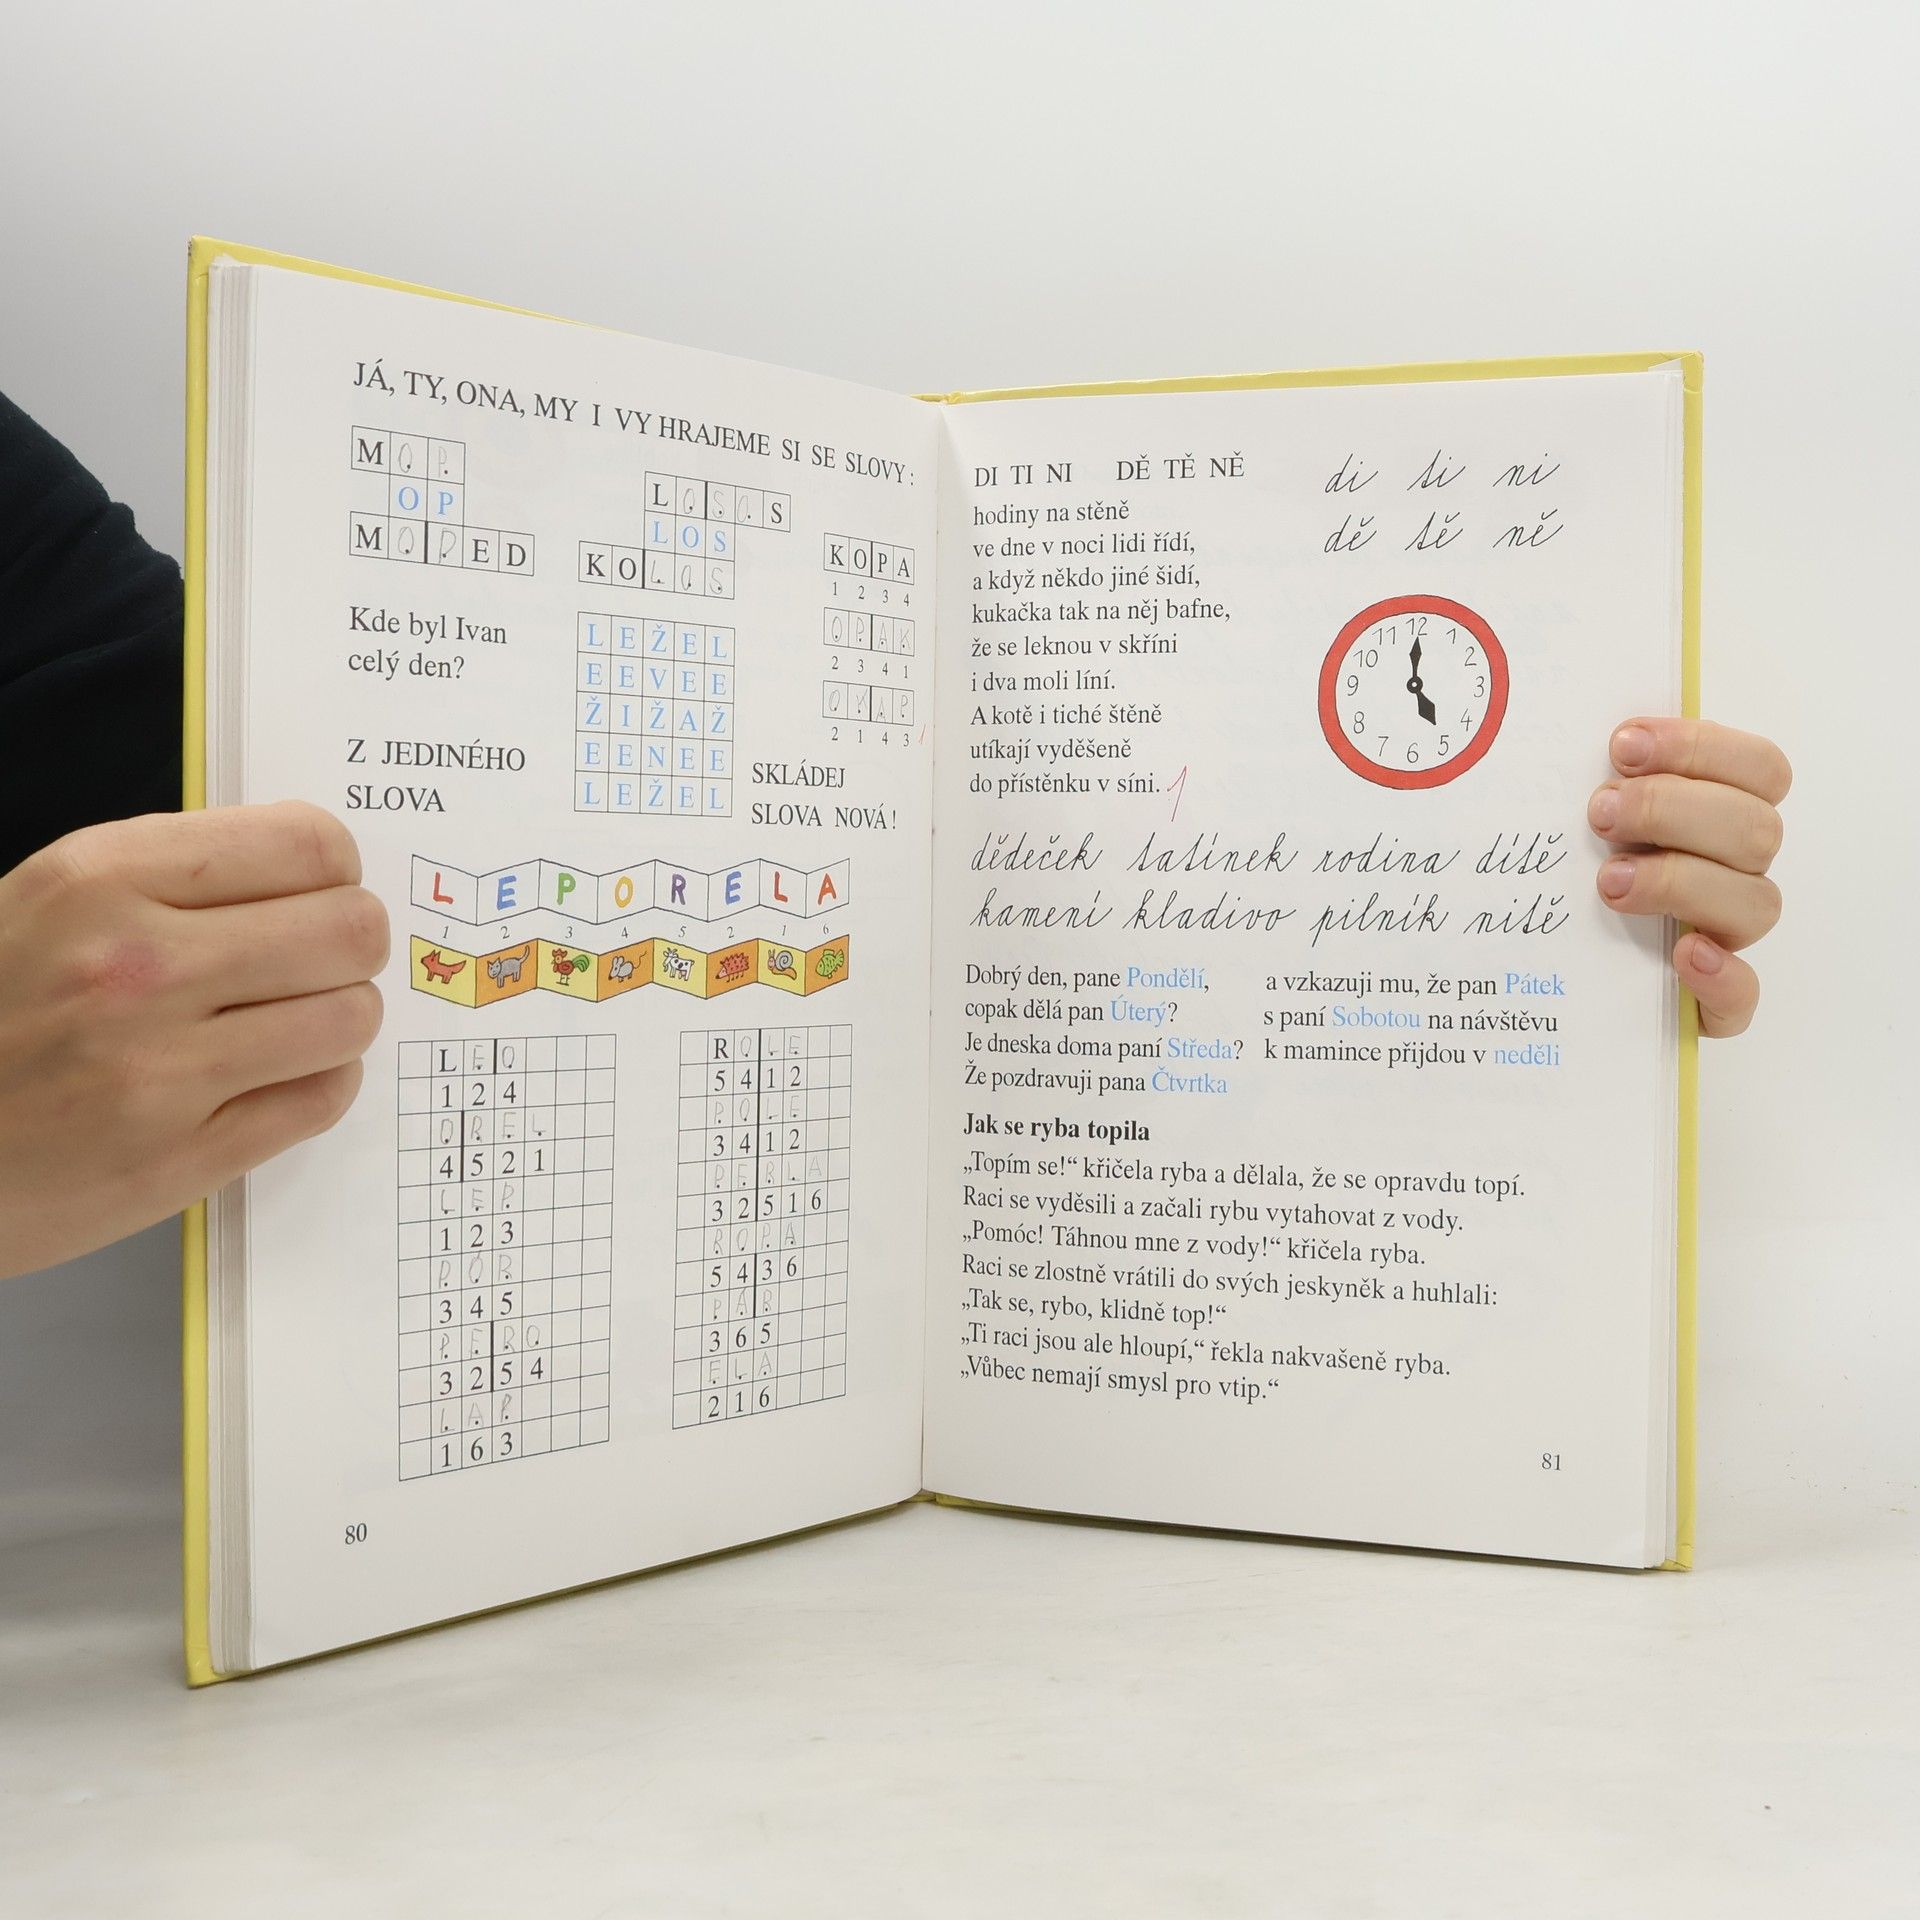 JÁ, TY, ONA, MY I VY HRAJEME SI SE SLOVY:
M O P
O P
M O P E D
L O S O S
L O S
K O L O S
K O P A
1 2 3 4
O P A K
2 3 4 1
O K A P
2 1 4 3
Kde byl Ivan
celý den?
L E Ž E L
E E V E E
Ž I Ž A Ž
E E N E E
L E Ž E L
Z JEDINÉHO
SLOVA
SKLÁDEJ
SLOVA NOVÁ!
L E P O R E L A
1 2 3 4 5 2 1 6
L E O
1 2 4
O R E L
4 5 2 1
L E P
1 2 3
P Ó R
3 4 5
P E R O
3 2 5 4
L A P
1 6 3
R O L E
5 4 1 2
P O L E
3 4 1 2
P E R L A
3 2 5 1 6
R O P A
5 4 3 6
P Á R
3 6 5
E L A
2 1 6
80
DI TI NI DĚ TĚ NĚ
di ti ni
dě tě ně
hodiny na stěně
ve dne v noci lidi řídí,
a když někdo jiné šidí,
kukačka tak na něj bafne,
že se leknou v skříni
i dva moli líní.
A kotě i tiché štěně
utíkají vyděšeně
do přístěnku v síni. 1
12 1 2 3 4 5 6 7 8 9 10 11
dědeček tatínek rodina dítě
kamení kladivo pilník nitě
Dobrý den, pane Pondělí,
copak dělá pan Úterý?
Je dneska doma paní Středa?
Že pozdravuji pana Čtvrtka
a vzkazuji mu, že pan Pátek
s paní Sobotou na návštěvu
k mamince přijdou v neděli
Jak se ryba topila
„Topím se!“ křičela ryba a dělala, že se opravdu topí.
Raci se vyděsili a začali rybu vytahovat z vody.
„Pomóc! Táhnou mne z vody!“ křičela ryba.
Raci se zlostně vrátili do svých jeskyněk a huhlali:
„Tak se, rybo, klidně top!“
„Ti raci jsou ale hloupí,“ řekla nakvašeně ryba.
„Vůbec nemají smysl pro vtip.“
81